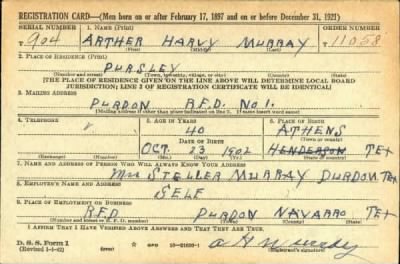 REGISTRATION CARD—(Men born on or after February 17, 1897 and on or before December 31, 1921)
SERIAL NUMBER 1. NAME (Print) ORDER NUMBER
T 904 ARTHER HARVY MURRAY T 11058
2. PLACE OF RESIDENCE (Print)
PURSLEY
(Number and street) (Town, township, village, or city) (County) (State)
[THE PLACE OF RESIDENCE GIVEN ON THE LINE ABOVE WILL DETERMINE LOCAL BOARD
JURISDICTION; LINE 2 OF REGISTRATION CERTIFICATE WILL BE IDENTICAL]
3. MAILING ADDRESS
PURDON R.F.D. No 1.
[Mailing address if other than place indicated on line 2. If same insert word same]
4. TELEPHONE 5. AGE IN YEARS 6. PLACE OF BIRTH
40 ATHENS
DATE OF BIRTH (Town or county)
OCT. 23 1902 HENDERSON TEX
(Exchange) (Number) (Mo.) (Day) (Yr.) (State or country)
7. NAME AND ADDRESS OF PERSON WHO WILL ALWAYS KNOW YOUR ADDRESS
Mrs STELLER MURRAY PURDON Tex
8. EMPLOYER'S NAME AND ADDRESS
SELF
9. PLACE OF EMPLOYMENT OR BUSINESS
RFD PURDON NAVARRO TEX
(Number and street or R. F. D. number) (Town) (County) (State)
I AFFIRM THAT I HAVE VERIFIED ABOVE ANSWERS AND THAT THEY ARE TRUE.
D. S. S. Form 1
(Revised 1-1-42) GPO 16—21630-1